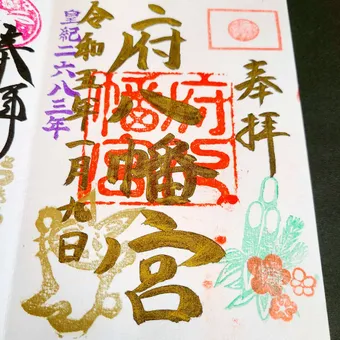 奉拝
府八幡宮
令和五年一月九日
皇紀二六八三年
奉拝